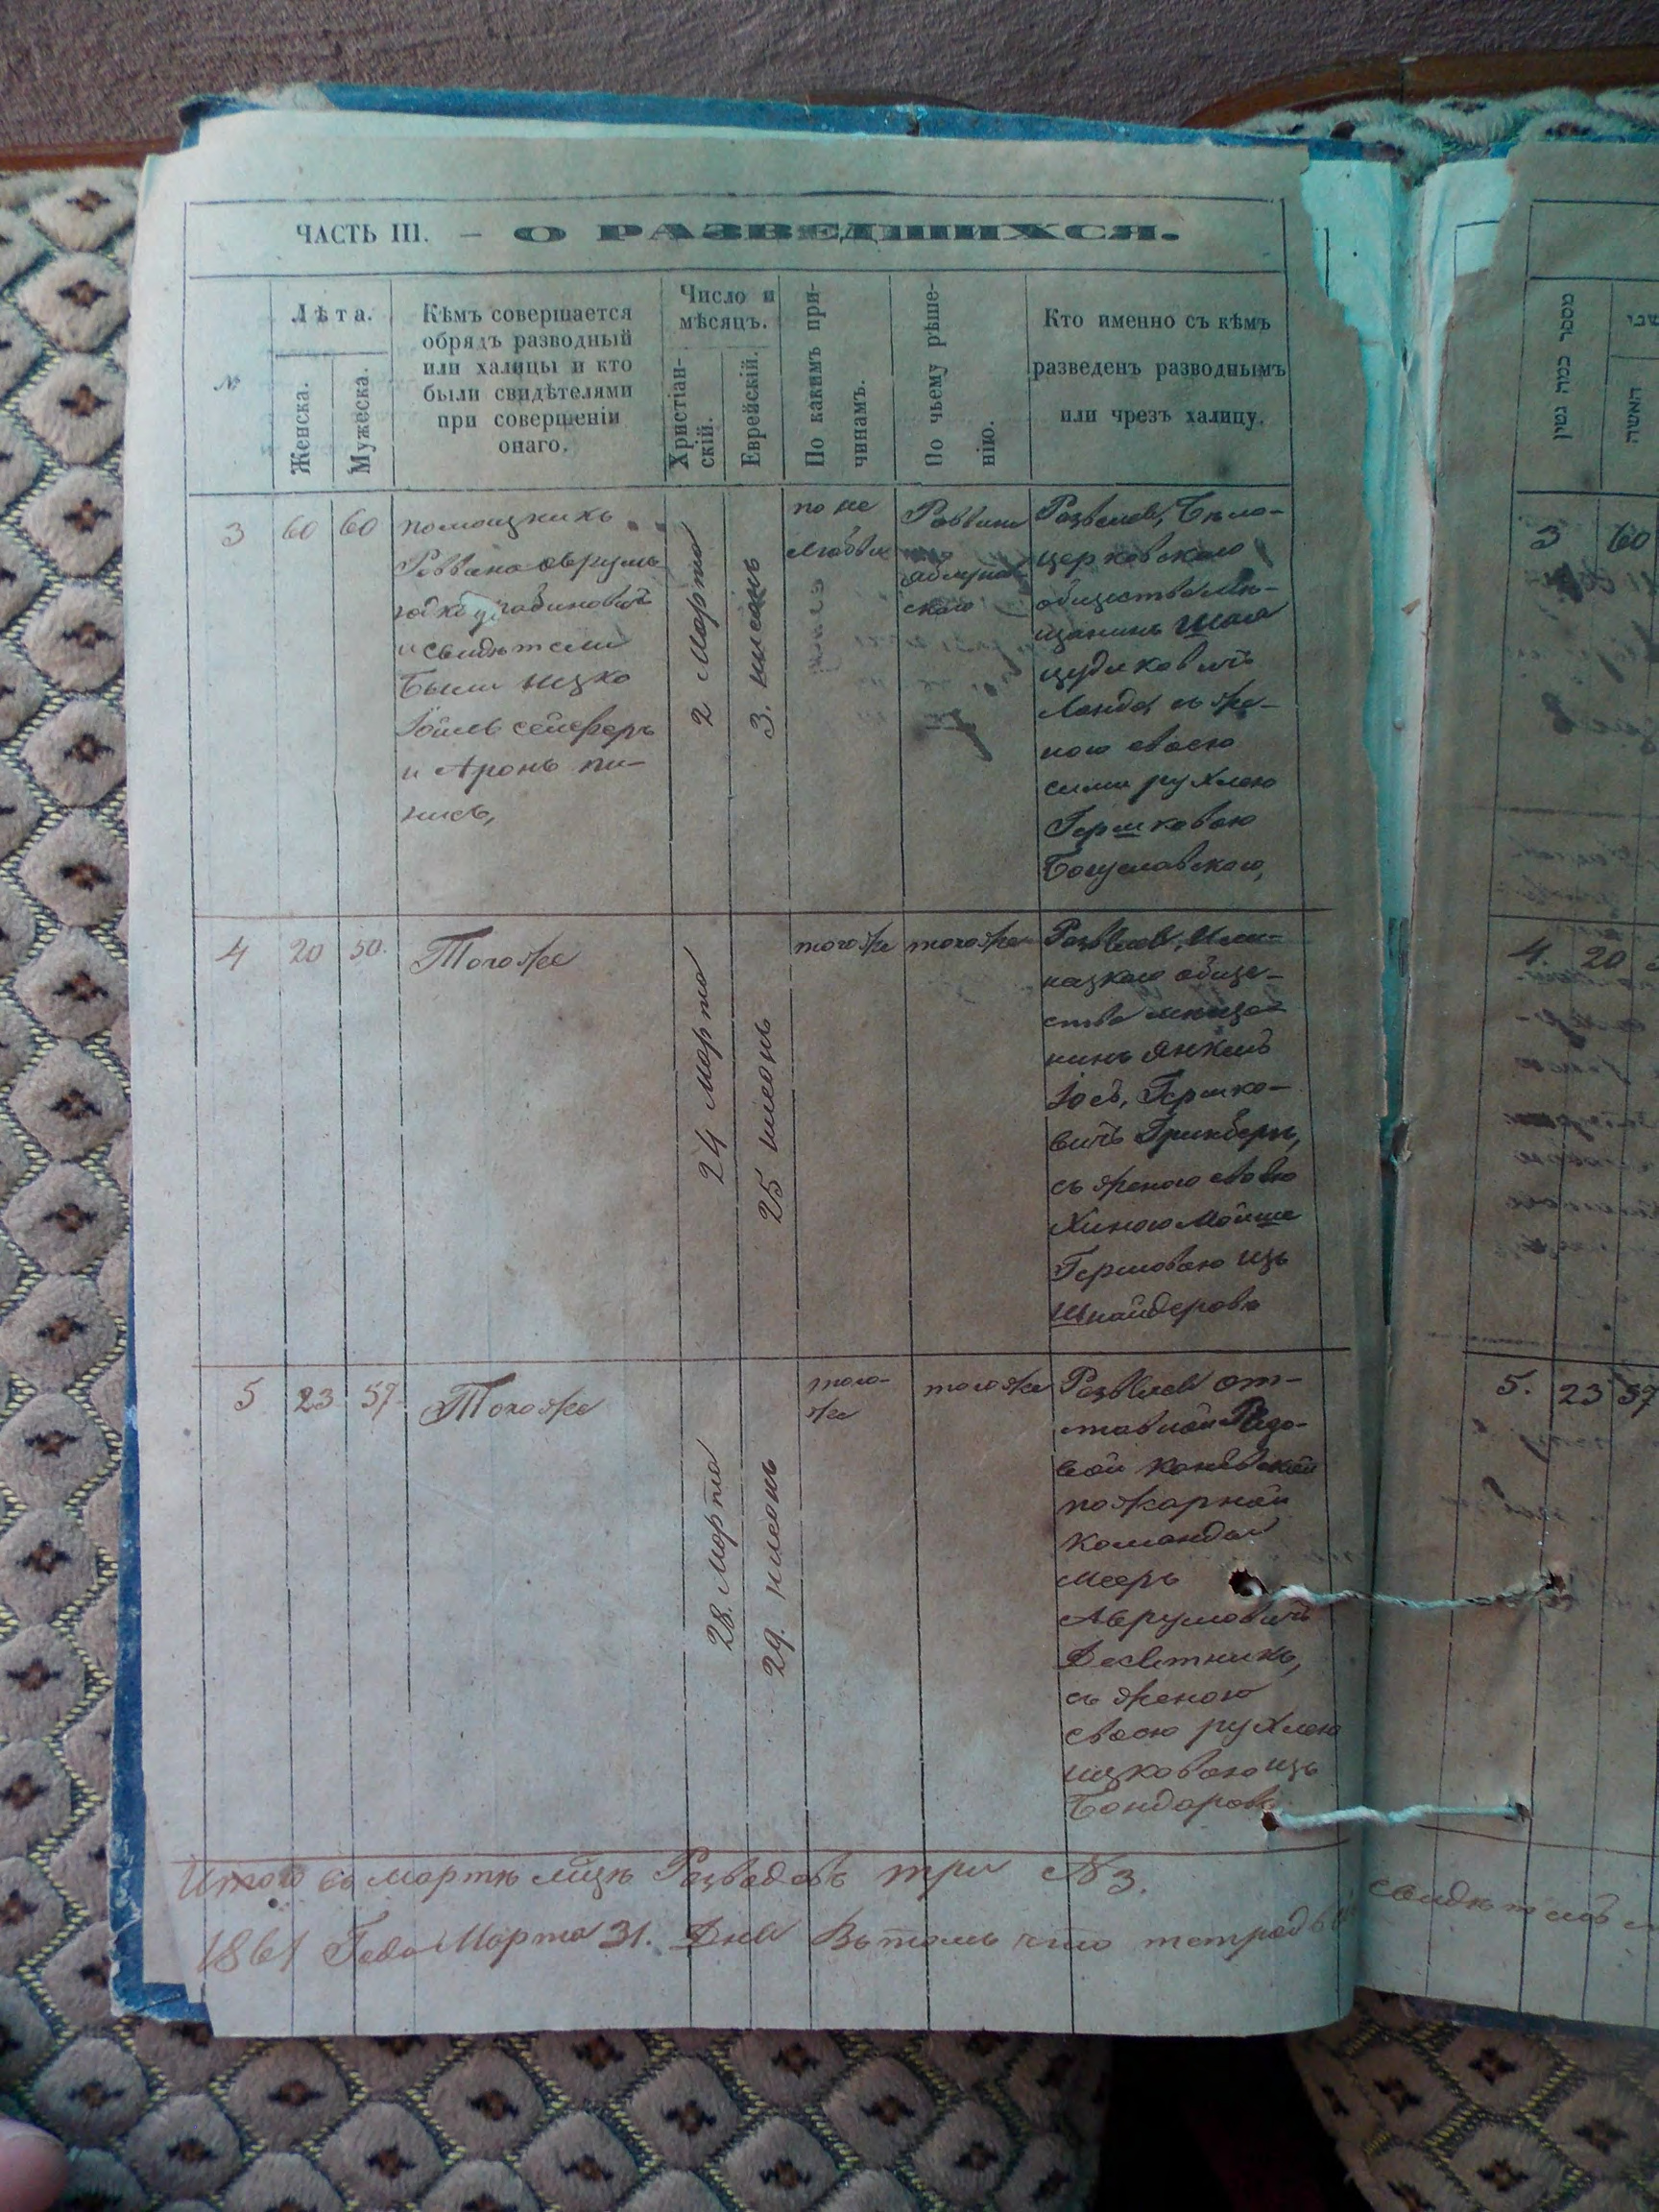 ЧАСТЬ III. — О РАЗВЕДШИХСЯ.
№
Лѣта.
Женска.
Мужеска.
Кѣмъ совершается
обрядъ разводный
или халицы и кто
были свидѣтелями
при совершеніи
онаго.
Число и
мѣсяцъ.
Христіан-
скій.
Еврейскій.
По какимъ при-
чинамъ.
По чьему рѣше-
нію.
Кто именно съ кѣмъ
разведенъ разводнымъ
или чрезъ халицу.
3
60
60
помощникъ
Раввина аврумъ
и свидѣтели
были ицко
Іойль сейферъ
и Аронъ пи-
нисъ,
2 Марта
3. нисонь
по не
любви
Раввина
Развелся, Бѣло-
церковскаго
общества мѣ-
щанинъ Шая
цудиковичъ
Ланда съ же-
ною своею
сими рухлею
Гершковою
Богуславскаго,
4
20
50.
Тогоже
24 Марта
25 нисонь
тогоже
тогоже
Развелся,
нацкаго обще-
ства мѣща-
нинъ Янкель
Іосъ, Гершко-
вичъ Гринбергъ,
съ женою своею
Хиною Мойше
Гершовою изъ
Шнайдеровъ
5
23
57
Тогоже
28. Марта
29. нисонь
того-
же
тогоже
Развелся от-
тавной Рядо-
вой каневской
пожарной
команды
Мееръ
Аврумовичъ
Десятникъ,
съ женою
своею рухлею
ицковою изъ
Бондаровъ
Итого въ мартѣ м͠цѣ Разводовъ три № 3.
1861 Года Марта 31. Дня Вътомъ что
מספר כמה גטין
האשה
3
60
4.
20
5.
23
57